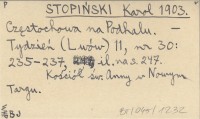 STOPIŃSKI Karol 1903.
Częstochowa na Podhalu. -
Tydzień (Lwów) 11, nr 30:
235-237, il. na s. 247.
Kościół św. Anny w Nowym
Targu.
BJ